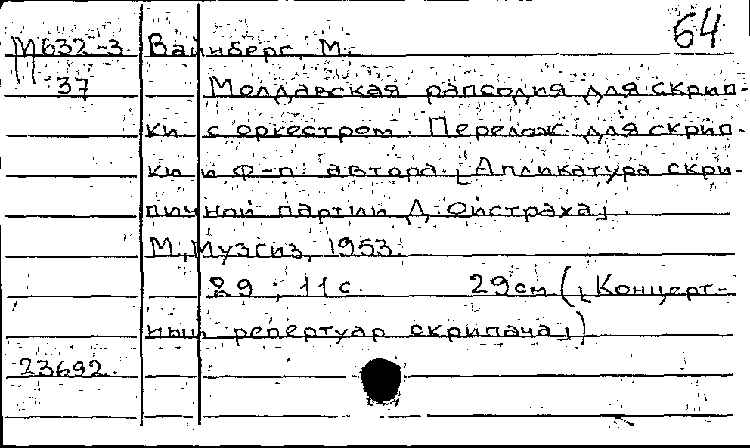 64
М632-3 Вайнберг, М.
37 Молдавская рапсодия для скрип-
ки с оркестром. Перелож. для скрип-
ки и ф-п. автора. [Аппликатура скри-
пичной партии Д. Ойстраха].
М., Музгиз, 1953.
29 ; 11 с. 29 см ([Концерт-
ный репертуар скрипача])
23692.